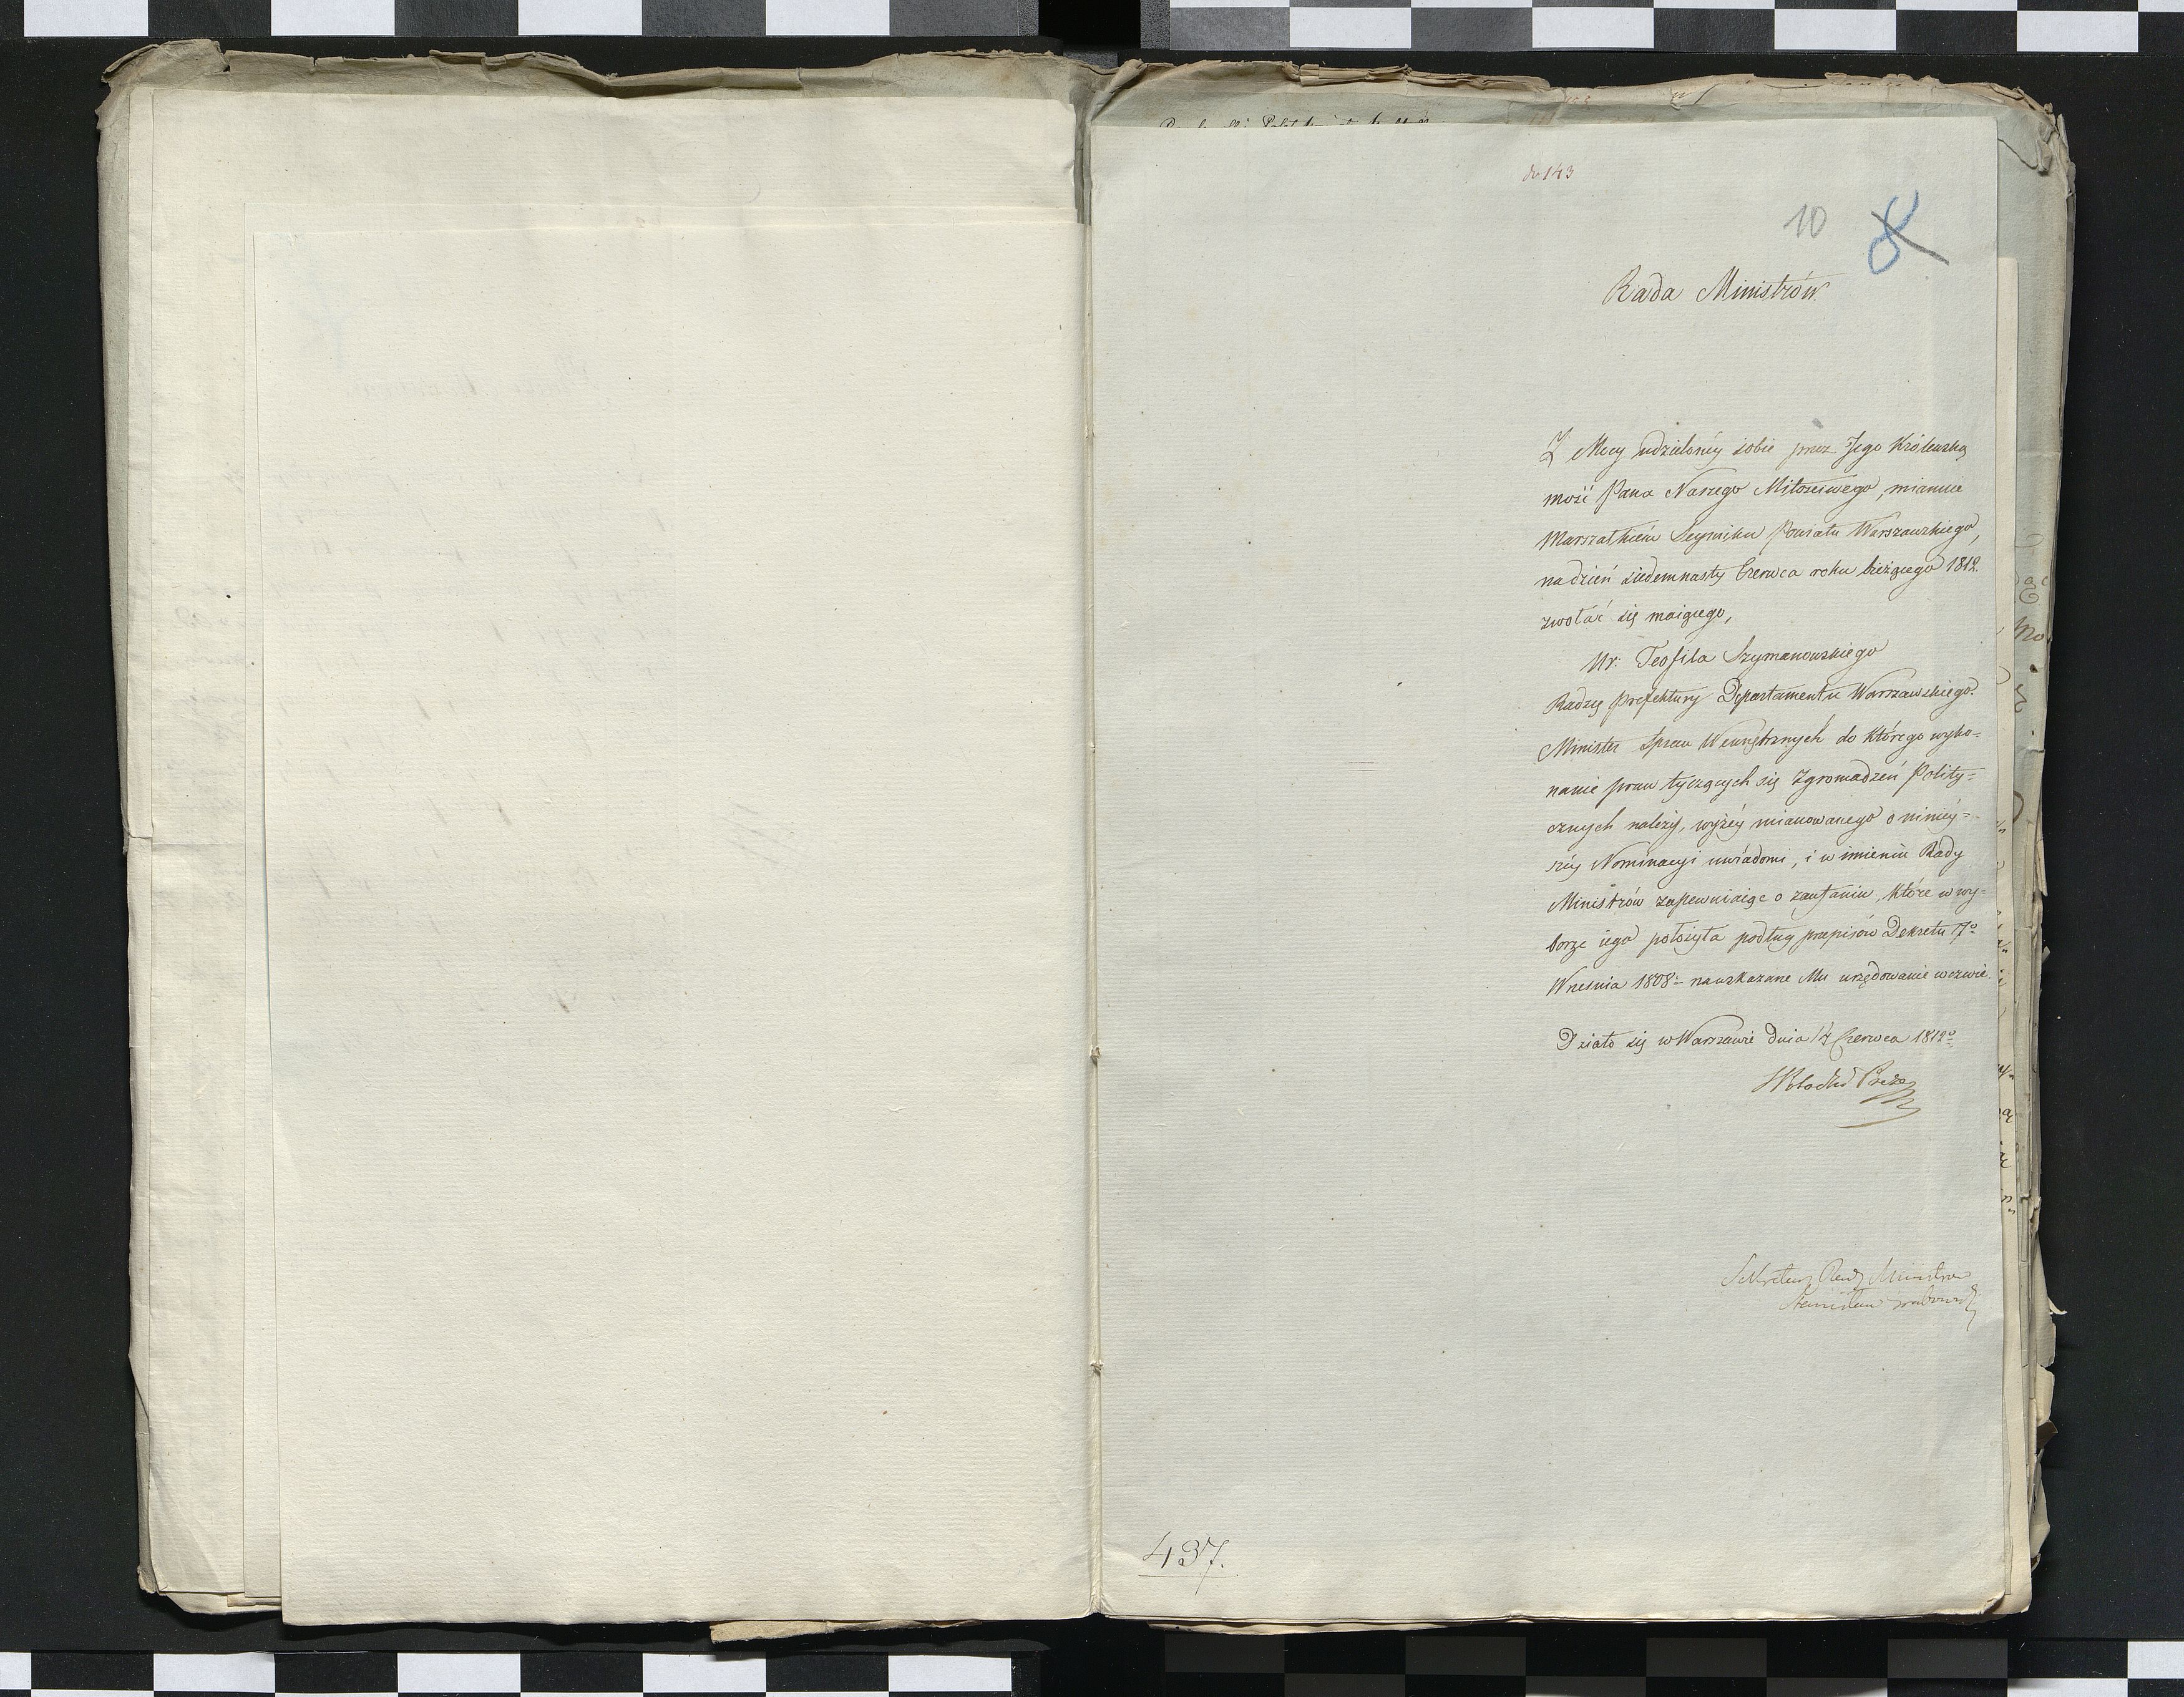 do 143
10 8
Rada Ministrów
Z Mocy udzielonéy sobie przez Jego Królewską
mość Pana Naszego Miłościwego, mianuie
Marszałkiem Seymiku Powiatu Warszawskiego,
na dzień siedemnasty Czerwca roku bieżącego 1812.
zwołać się maiącego,
Ur: Teofila Szymanowskiego
Radzcę Prefektury Departamentu Warszawskiego.
Minister Spraw Wewnętrznych do którego wyko=
nanie praw tyczących się Zgromadzeń Polity=
cznych należy, wyżéy mianowanego o ninieý=
széy Nominacyi uwiadomi, i w imieniu Rady
Ministrów zapewniaiąc o zaufaniu, które w wy=
borze iego położyła podług przepisów Dekretu 7º
Wrzesnia 1808 na wskazane Mu urzędowanie wezwie.
Działo się w Warszawie dnia 14 Czerwca 1812º
Sekretarz Rady Ministrów
Stanisław
437.